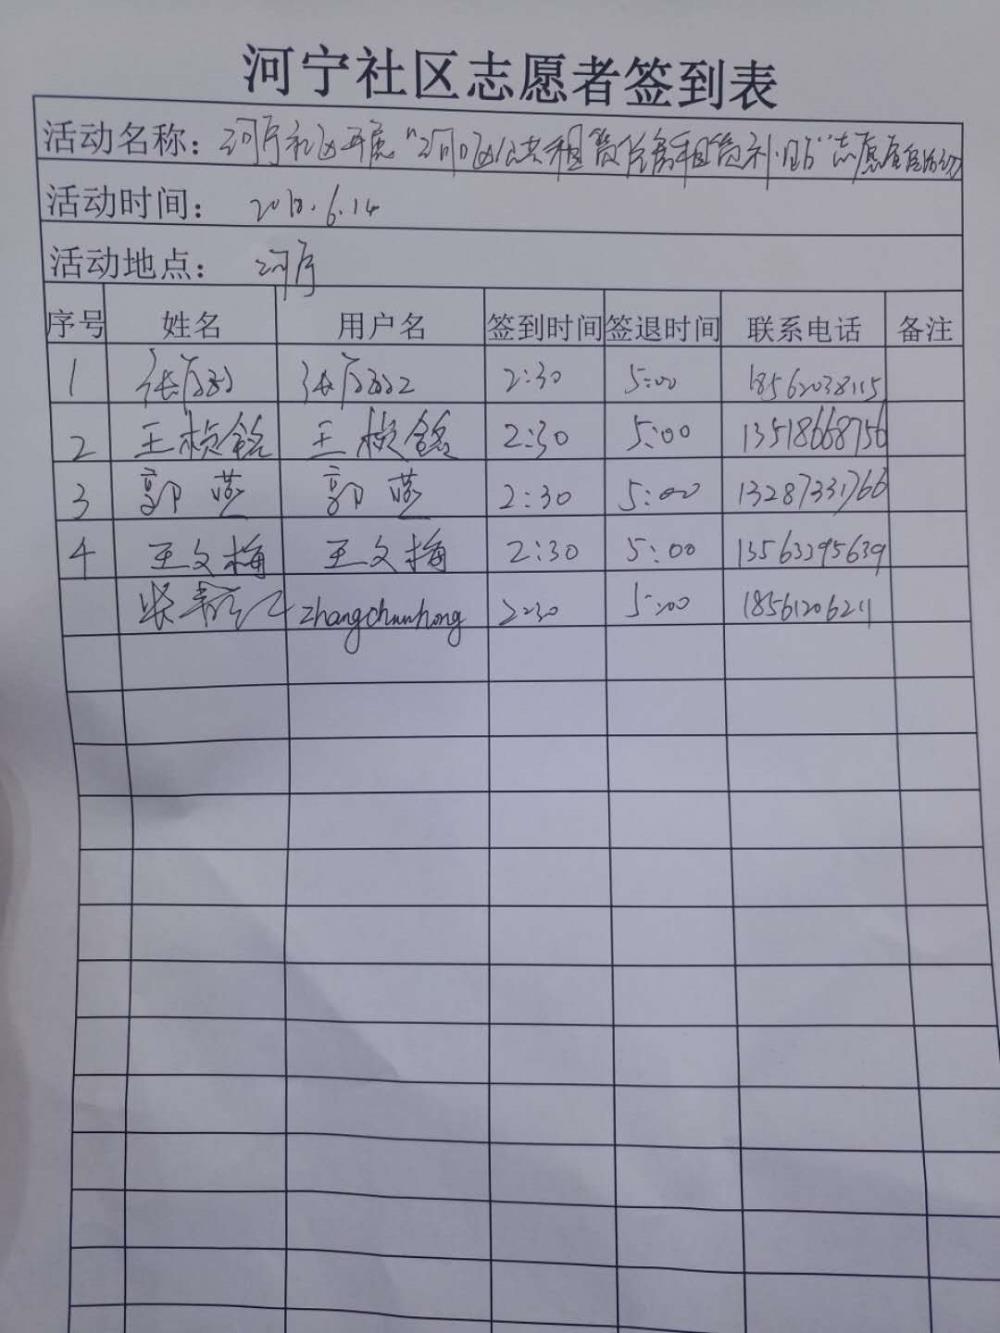 河宁社区志愿者签到表
活动名称：河宁社区开展"河口区公共租赁住房租赁补贴"志愿宣传活动
活动时间：2018.6.14
活动地点：河宁
序号 姓名 用户名 签到时间 签退时间 联系电话 备注
1 2:30 5:00 18562038115
2 王桢铭 王桢铭 2:30 5:00 13518668756
3 郭燕 郭燕 2:30 5:00 13287331766
4 王文梅 王文梅 2:30 5:00 13563395639
zhangchunhong 2:30 5:00 18561206211